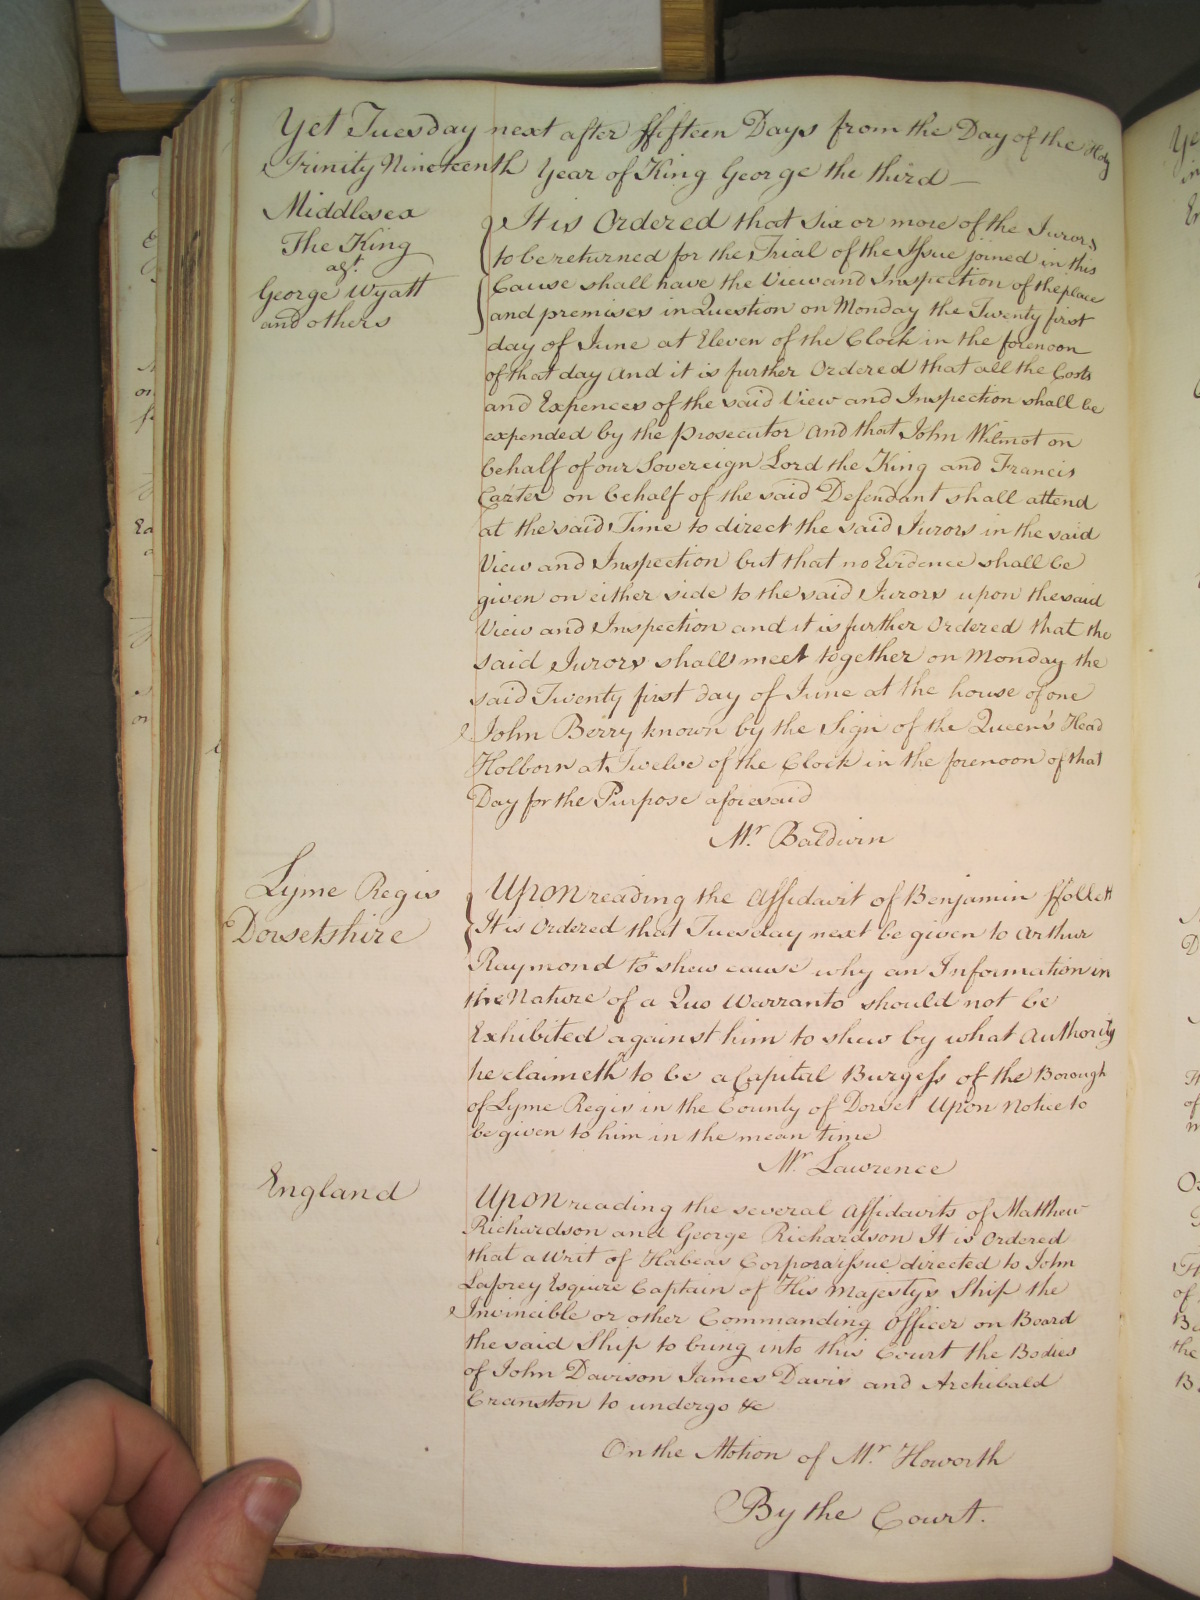 Yet Tuesday next after ffifteen Days from the Day of the Holy
Trinity Nineteenth Year of King George the third —
Middlesex
The King
agt.
George Wyatt
and others
It is Ordered that Six or more of the Jurors
to be returned for the Trial of the Issue joined in this
Cause shall have the View and Inspection of the place
and premises in Question on Monday the Twenty first
day of June at Eleven of the Clock in the forenoon
of that day And it is further Ordered that all the Costs
and Expences of the said View and Inspection shall be
expended by the prosecutor And that John Wilmot on
behalf of our Sovereign Lord the King and Francis
Carter on behalf of the said Defendant shall attend
at the said Time to direct the said Jurors in the said
View and Inspection but that no Evidence shall be
given on either side to the said Jurors upon the said
View and Inspection and it is further Ordered that the
said Jurors shall meet together on Monday the
said Twenty first day of June at the house of one
John Berry known by the Sign of the Queen's Head
Holborn at Twelve of the Clock in the forenoon of that
Day for the Purpose aforesaid
Mr. Baldwin
Lyme Regis
Dorsetshire
Upon reading the Affidavit of Benjamin ffollett
It is Ordered that Tuesday next be given to Arthur
Raymond to shew cause why an Information in
the Nature of a Quo Warranto should not be
Exhibited against him to shew by what Authority
he claimeth to be a Capital Burgess of the Borough
of Lyme Regis in the County of Dorset Upon Notice to
be given to him in the mean time
Mr. Lawrence
England
Upon reading the several Affidavits of Matthew
Richardson and George Richardson It is Ordered
that a Writ of Habeas Corpora issue directed to John
Laforey Esquire Captain of His Majestys Ship the
Invincible or other Commanding Officer on Board
the said Ship to bring into this Court the Bodies
of John Davison James Davis and Archibald
Cranston to undergo &c
On the Motion of Mr. Howorth
By the Court.